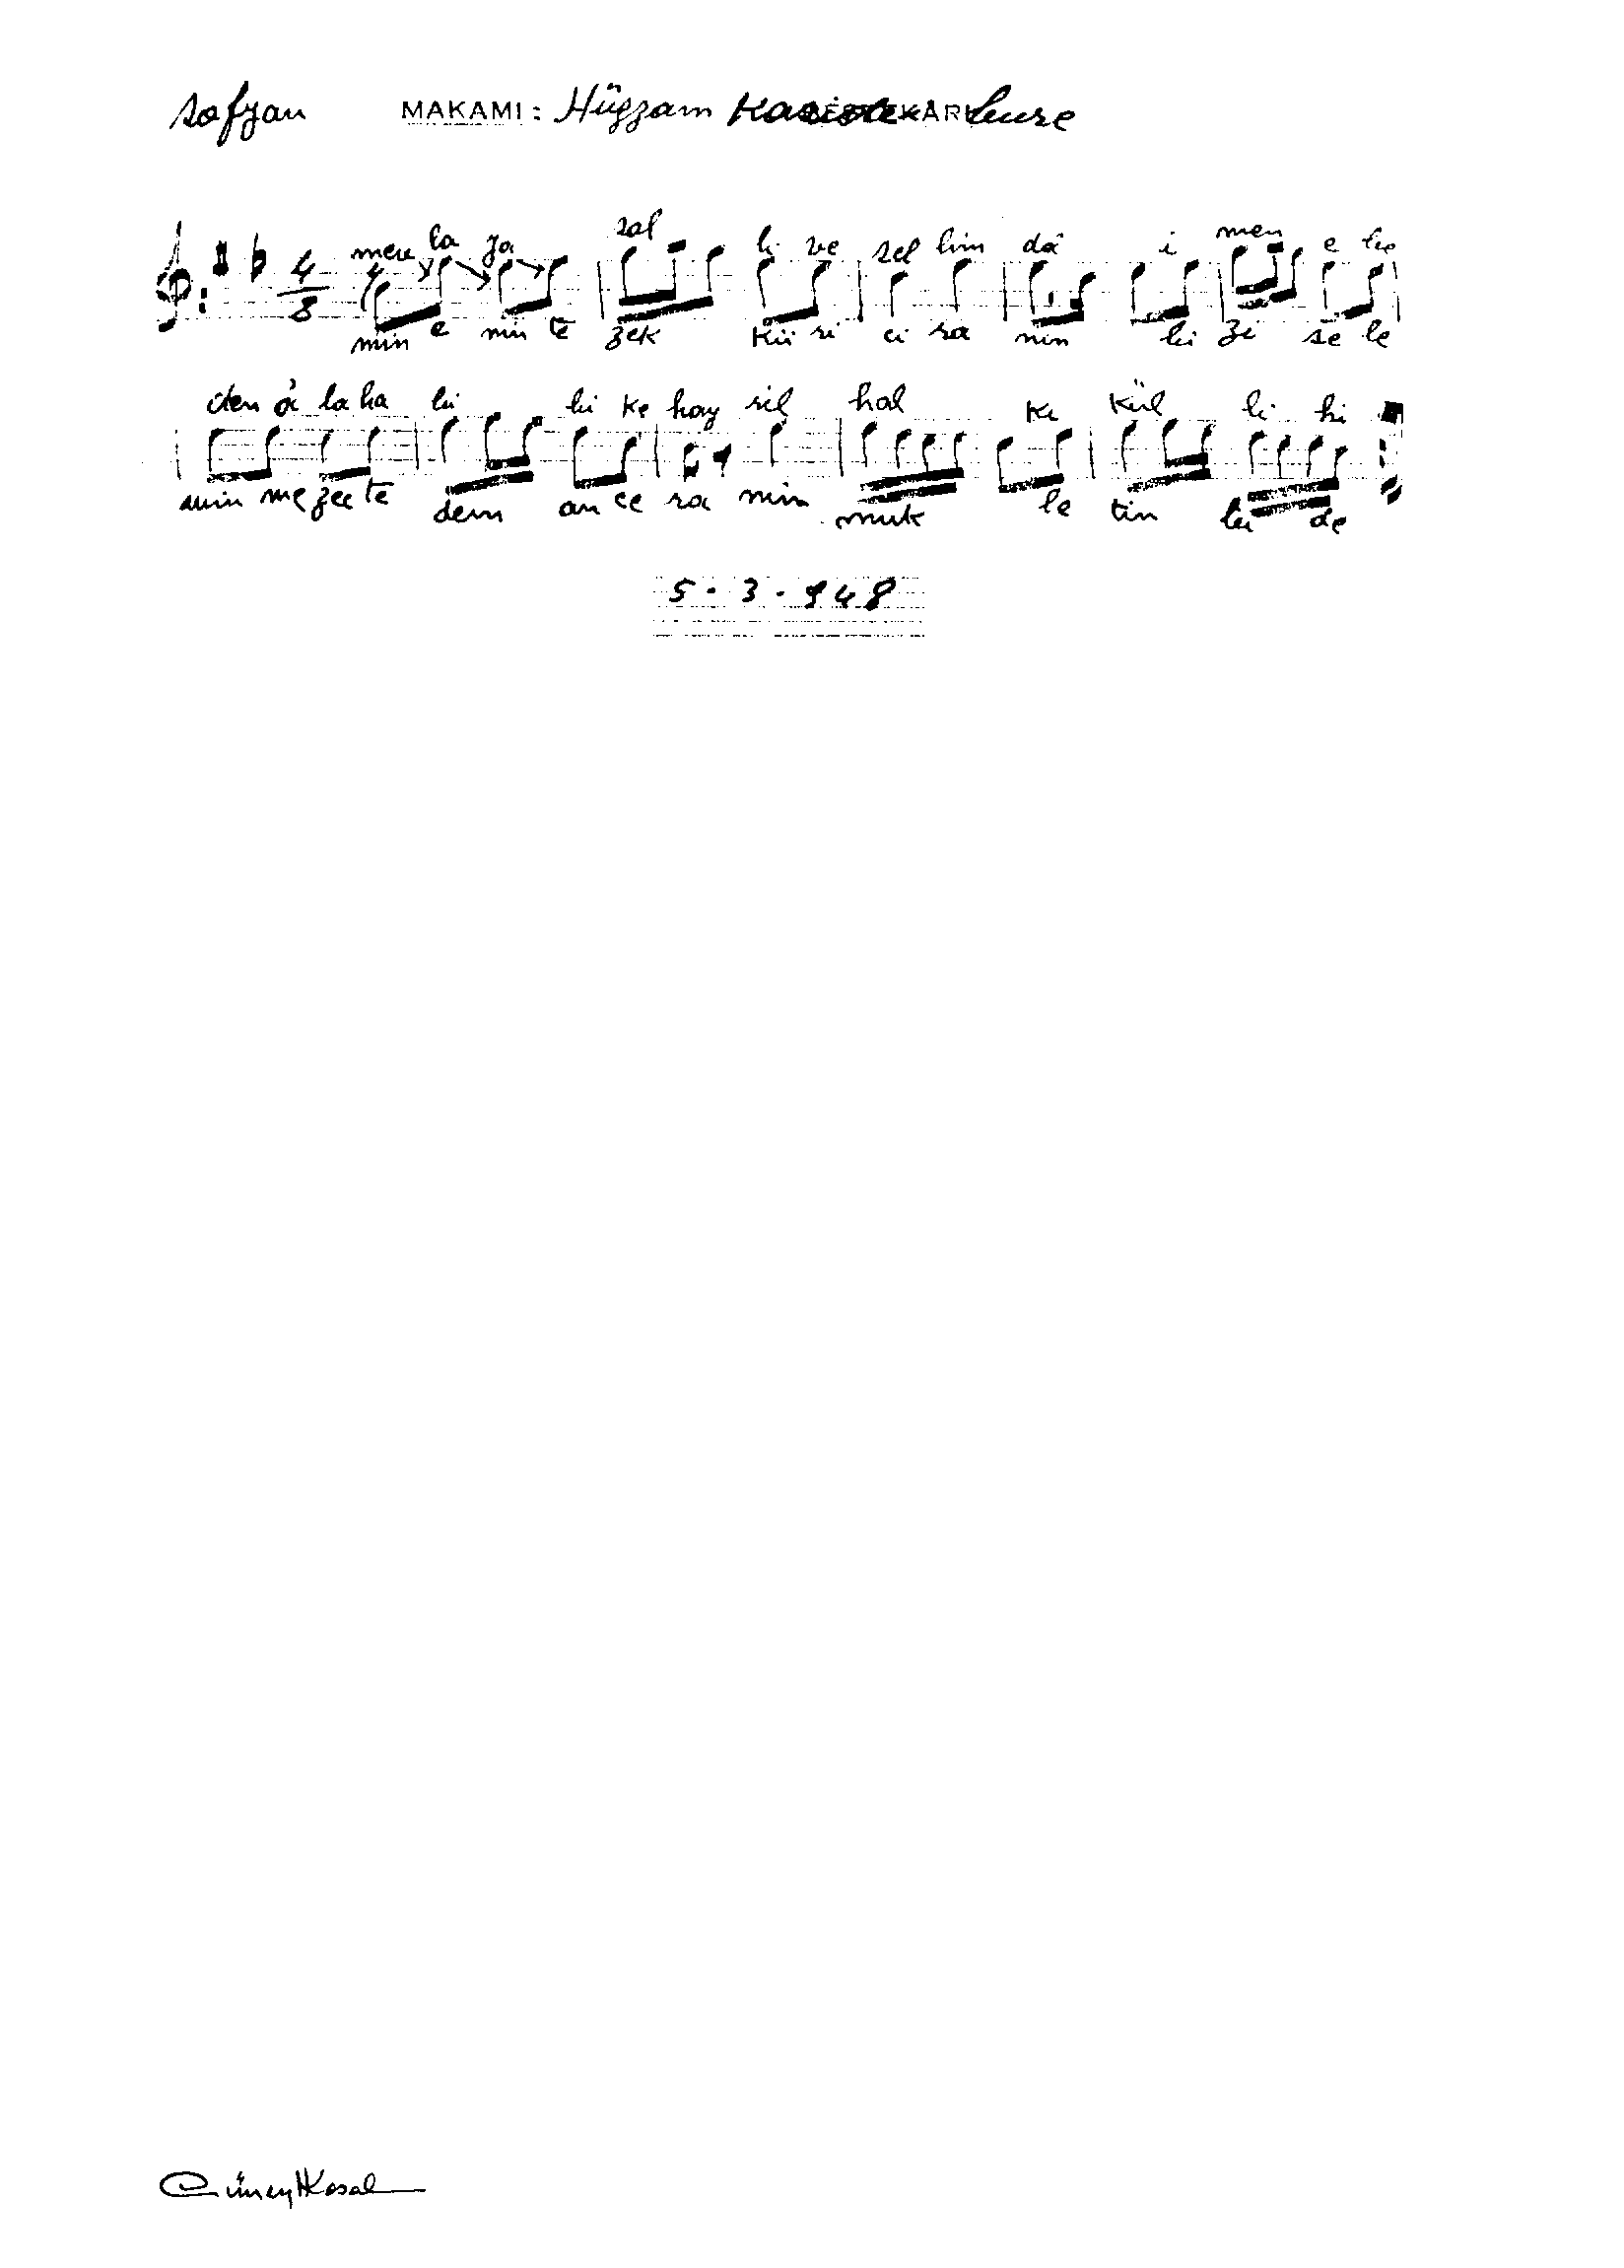 sofyan MAKAMI : Hüzzam Kaside
4/8
mev la ya sal li ve sel lim dâ i men e be
min e min te zek kü ri ci ra nin bi zi se le
den â la ha bi bi ke hay ril hal ki kül li hi
min me zec te dem an ce ra min muk le tin bi de
5 . 3 . 948
Cüneyt Kosal